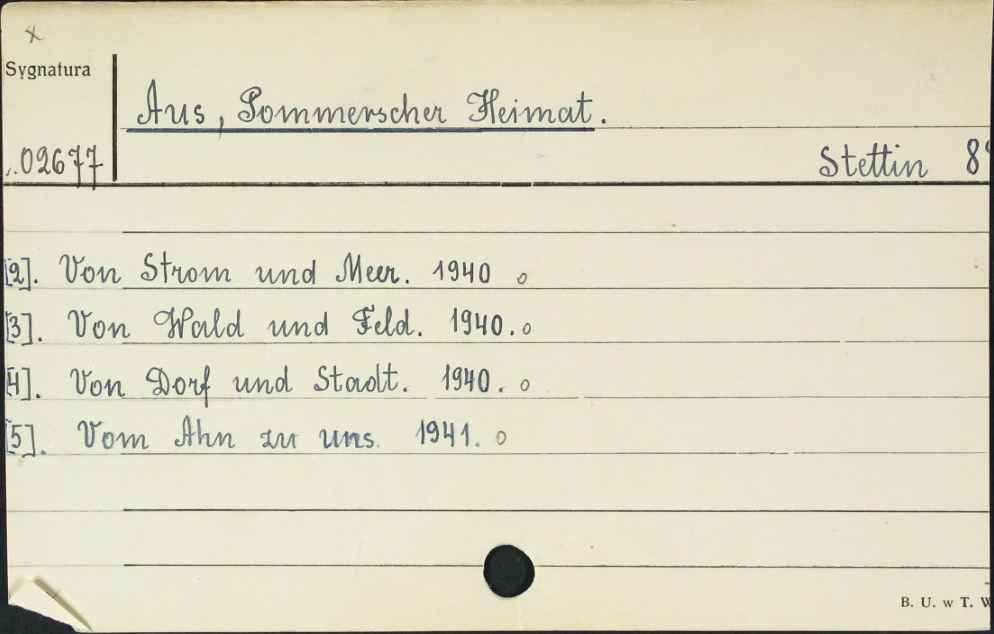 x
Sygnatura
Aus, Pommerscher Heimat.
02677
Stettin 8°
[2]. Von Strom und Meer. 1940 o
[3]. Von Wald und Feld. 1940. o
[4]. Von Dorf und Stadt. 1940. o
[5]. Vom Ahn zu uns. 1941. o
B. U. w T. W